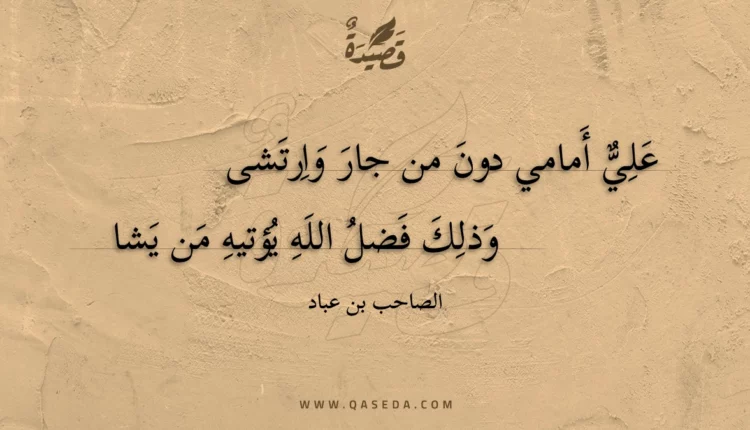 قَصِيدَةٌ
عَلِيٌّ أَمامي دونَ من جارَ وَاِرتَشى
وَذلِكَ فَضلُ اللَهِ يُؤتيهِ مَن يَشا
الصاحب بن عباد
WWW.QASEDA.COM